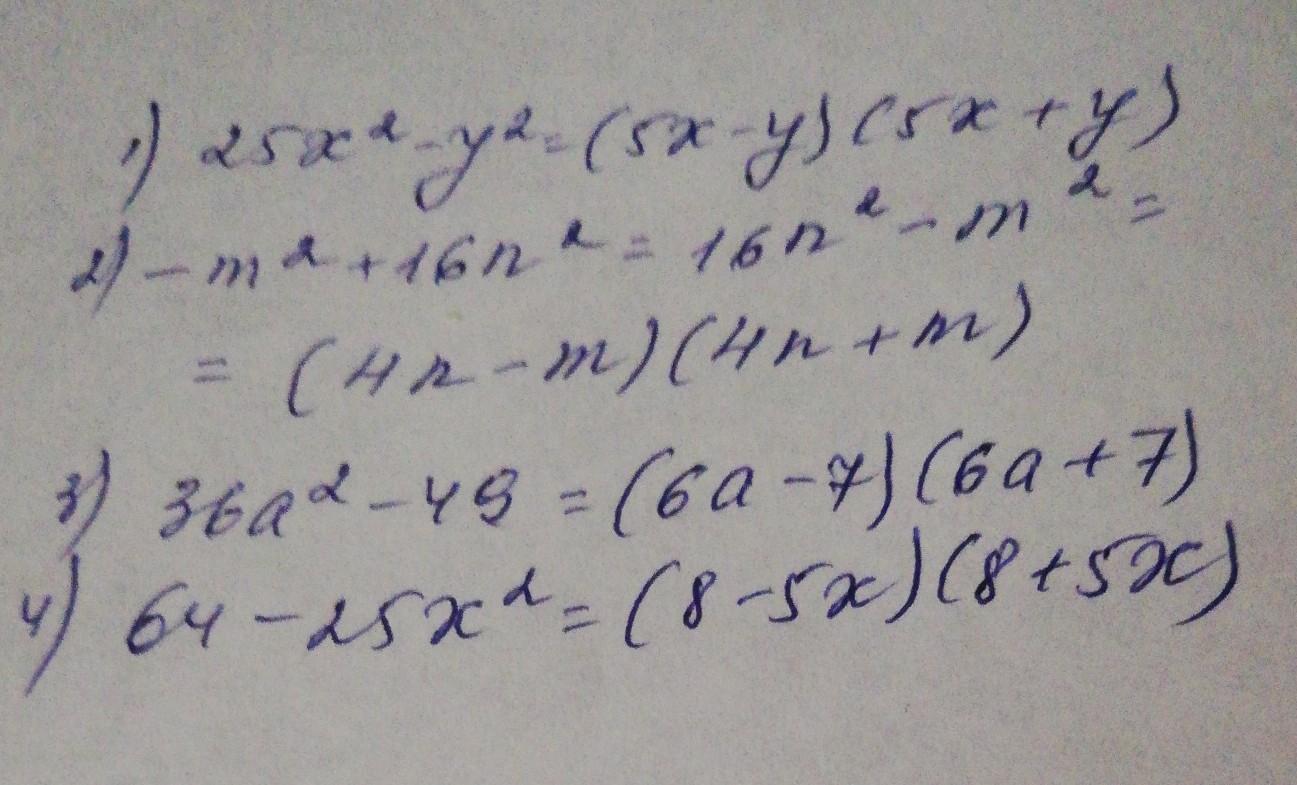 1) 25x² - y² = (5x - y)(5x + y)
2) - m² + 16n² = 16n² - m² =
= (4n - m)(4n + m)
3) 36a² - 49 = (6a - 7)(6a + 7)
4) 64 - 25x² = (8 - 5x)(8 + 5x)